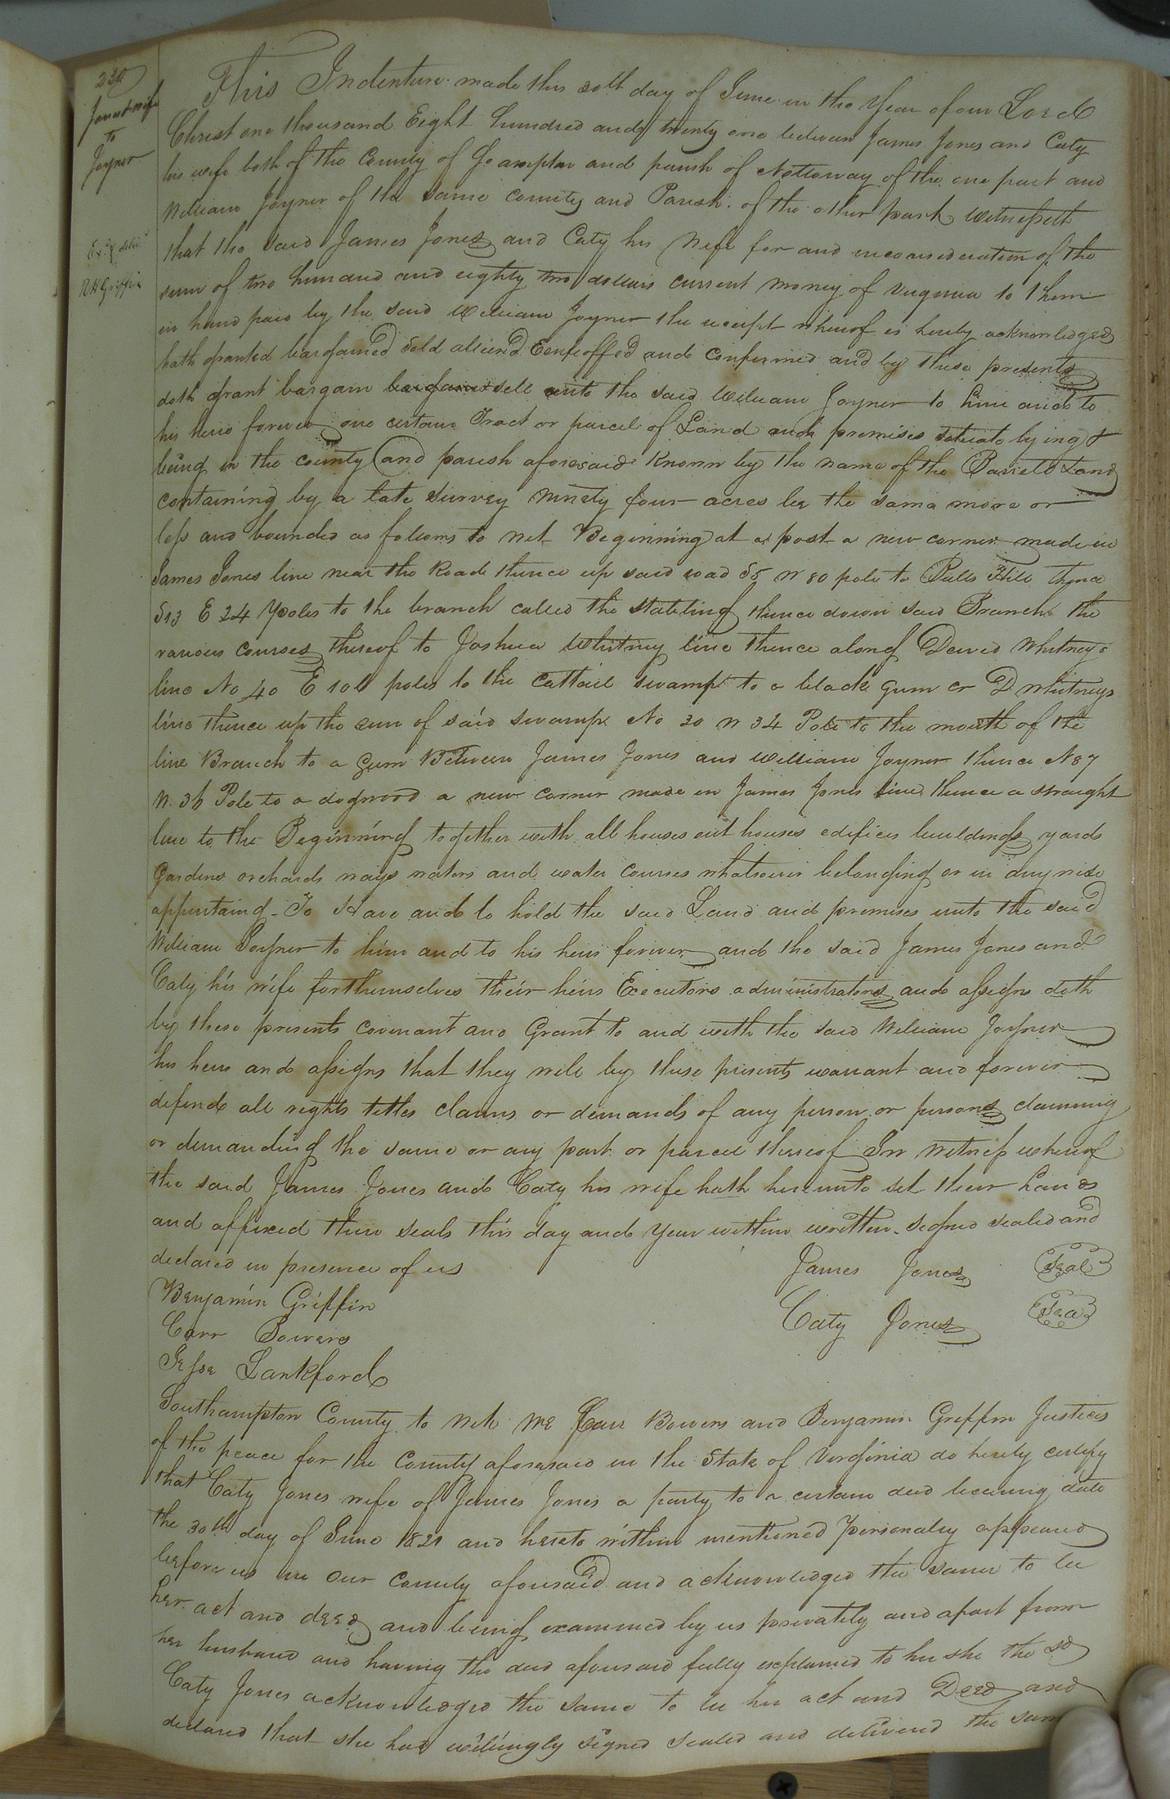 230
Jones & wife
to
Joyner
Ex & deld
R H Griffin
This Indenture made this 30th day of June in the Year of our Lord
Christ one thousand Eight hundred and twenty one between James Jones and Caty
his wife both of the County of So ampton and parish of Nottoway of the one part and
William Joyner of the same county and Parish of the other part Witnesseth
that the said James Jones and Caty his Wife for and in consideration of the
sum of two hundred and eighty two dollars current money of Virginia to them
in hand paid by the said William Joyner the receipt whereof is hereby acknowledged
hath granted bargained sold aliend Eenfeoffed and confirmed and by these presents
doth grant bargain bargain sell unto the said William Joyner to him and to
his heirs forever one certain Tract or parcel of Land and premises situate lying &
being in the county and parish aforesaid Known by the name of the Land
containing by a late survey ninety four acres be the same more or
less and bounded as follows to wit Beginning at a post a new corner made in
James Jones line near the Road thence up said road S5 W 80 pole to Hill thence
S13 E 24 poles to the branch called the thence down said Branch the
various courses thereof to Joshua Whitney line thence along David Whitneys
line No 40 E 100 poles to the Cattail swamp to a black gum or D Whitneys
line thence up the run of said swamp No 20 W 34 Pole to the mouth of the
line Branch to a gum Between James Jones and William Joyner thence N 87
W. 36 Pole to a dogwood a new corner made in James Jones line thence a straight
line to the Beginning together with all houses out houses edifices buildings yards
Gardens orchards ways waters and water courses whatsoever belonging or in any wise
appertaing - To Have and to hold the said Land and premises unto the said
William Joyner to him and to his heirs forever and the said James Jones and
Caty his wife for themselves their heirs Executors administrators and assigns doth
by these presents covenant and Grant to and with the said William Joyner
his heirs and assigns that they will by these presents warrant and forever
defend all rights titles claims or demands of any person or persons claiming
or demanding the same or any part or parcel thereof In Witness whereof
the said James Jones and Caty his wife hath hereunto set their hands
and affixed their seals this day and Year within written. Signed sealed and
declared in presence of us
James Jones Seal
Benjamin Griffin
Caty Jones Seal
Carr Bowers
Jesse Lankford
Southampton County to wit We Carr Bowers and Benjamin Griffin Justices
of the peace for the County aforesaid in the State of Virginia do hereby certify
that Caty Jones wife of James Jones a party to a certain deed bearing date
the 30th day of June 1821 and hereto within mentioned Personally appeared
before us in our County aforesaid and acknowledged the same to be
her act and deed and being examined by us privately and apart from
her husband and having the deed aforesaid fully explained to her she the sd
Caty Jones acknowledged the same to be her act and Deed and
declared that she had willingly signed sealed and delivered the same